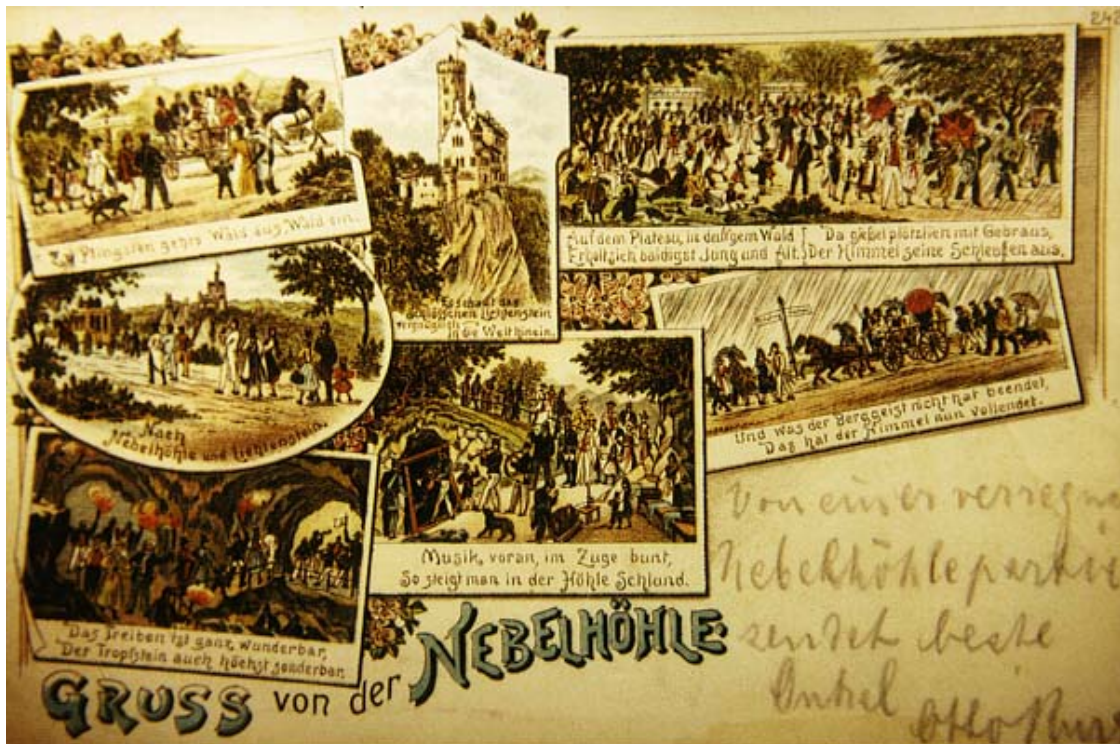 242
Zu Pfingsten gehts Wald aus Wald ein.
Es schaut das
Schlösschen Lichtenstein
vergnüglich
in die Welt hinein.
Auf dem Plateau, in dufgem Wald
Erholt sich baldigst Jung und Alt.
Da giebel plötzlich mit Gebraus,
Der Himmel seine Schleußen aus.
Nach
Nebelhöhle und Lichtenstein.
Und was der Berggeist nicht hat beendet,
Das hat der Himmel nun vollendet.
Musik voran, im Zuge bunt,
So steigt man in der Höhle Schlund.
Das Treiben ist ganz wunderbar,
Der Tropfstein auch höchst sonderbar.
GRUSS von der NEBELHÖHLE
Von einer verregn
Nebelhöhlepartie
sendet beste
Onkel
Otto